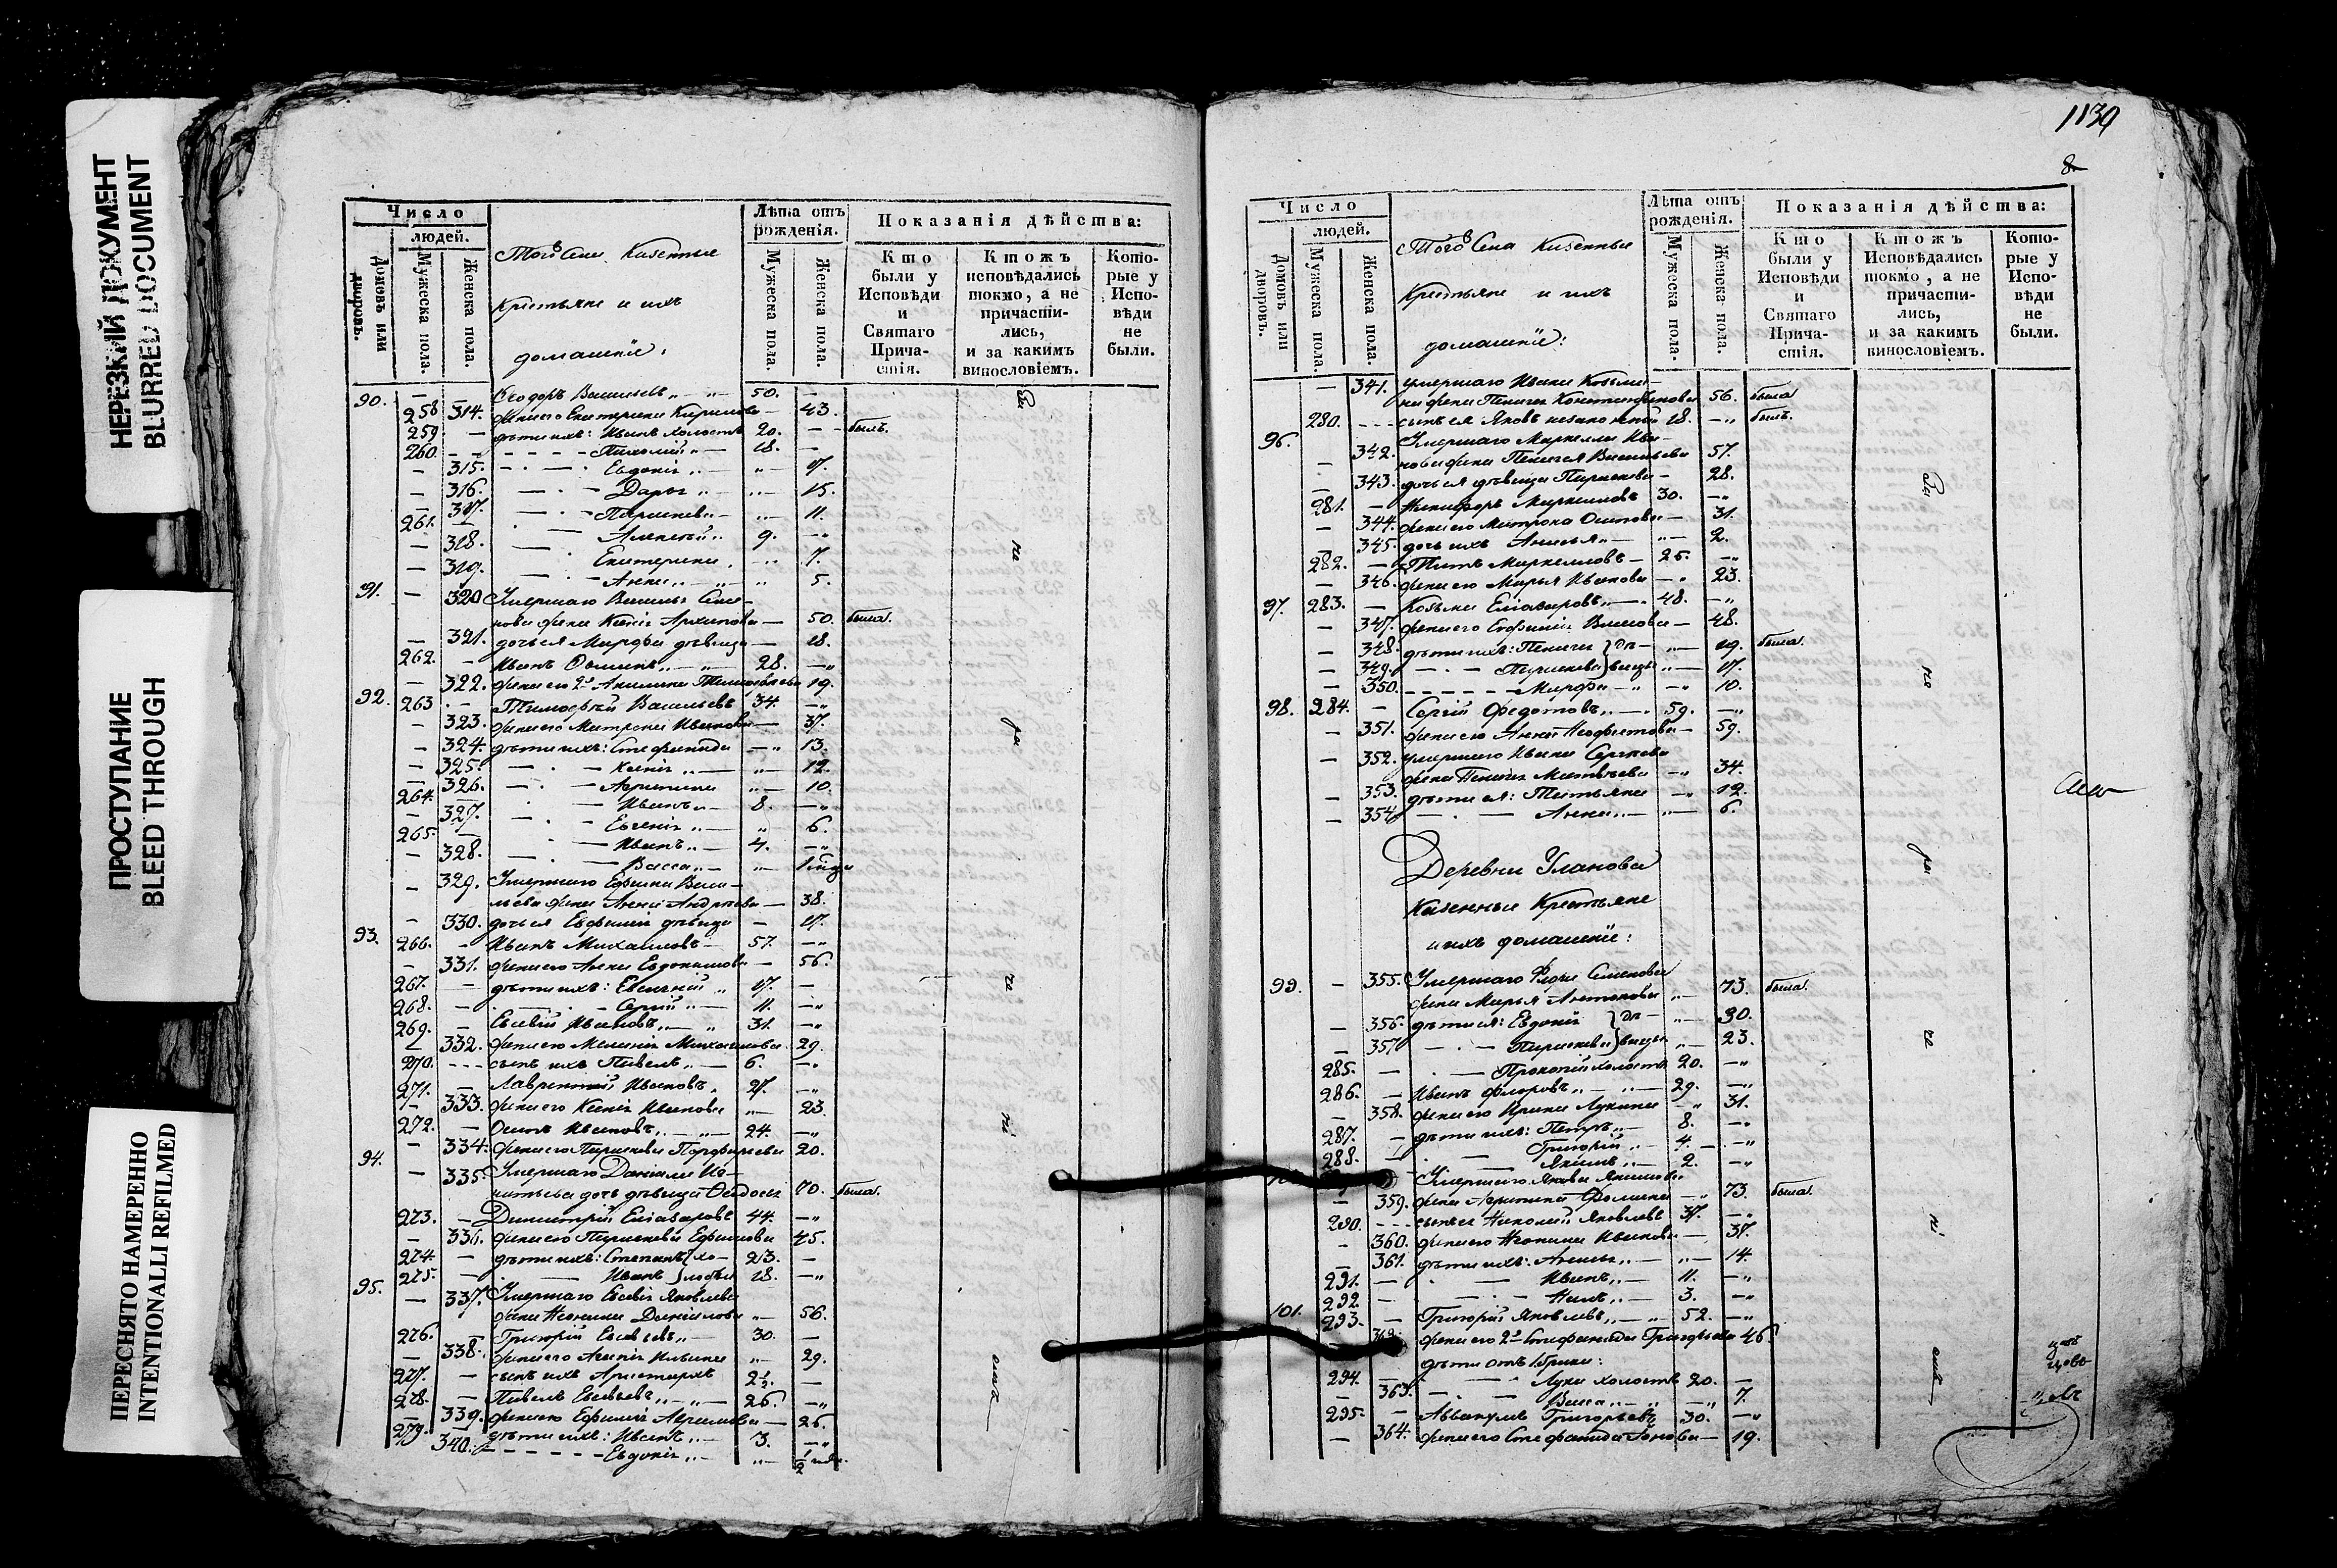 НЕРЕЗКИЙ ДОКУМЕНТ
BLURRED DOCUMENT
ПРОСТУПАНИЕ
BLEED THROUGH
ПЕРЕСНЯТО НАМЕРЕННО
INTENTIONALLI REFILMED
Число
людей.
Домовъ или дворовъ.
Мужеска пола.
Женска пола.
Того Села Казенные
Крестьяне и ихъ
домашніе:
Лѣта отъ рожденія.
Мужеска пола.
Женска пола.
Показанія дѣйства:
Кто были у Исповѣди и Святаго Причастія.
Ктожъ исповѣдались токмо, а не причастились, и за какимъ винословіемъ.
Которые у Исповѣди не были.
90. 258 Ѳеодоръ Васильевъ 50.
314. жена его Екатерина 43.
259. дѣти ихъ: Иванъ холостъ 20. былъ.
260. 18.
315. Евдокія 17.
316. Дарья 15.
317. Параскева 11.
261. Алексѣй 9.
318. Екатерина 7.
319. Анна 5.
91. 320 Умершаго Василья Семе-
нова жена Ксенія Архипова 50. была.
321. дочь ея Марфа дѣвица 18.
262. Иванъ 28.
322. жена его 2я Акилина 19.
92. 263 Тимоѳей Васильевъ 34.
323. жена его Матрона Иванова 37.
324. дѣти ихъ: Стефанида 13.
325. Ксенія 12.
326. Агрипина 10.
264. Иванъ 8.
327. Евгенія 6.
265. Иванъ 4.
328. Васса 1 года
329. Умершаго Ефима Васи-
льева жена Анна Андреева 38.
330. дочь ея Евфимія дѣвица 17.
93. 266. Иванъ Михаиловъ 57.
331. жена его Анна Евдокимова 56.
267. дѣти ихъ: Евгеній 17.
268. Сергій 11.
269. Евсевій Ивановъ 31.
332. жена его Меланія Михаилова 29.
270. сынъ ихъ Павелъ 6.
271. Лаврентій Ивановъ 27.
333. жена его Ксенія Иванова 23.
272. Осипъ Ивановъ 24.
334. жена его Параскева Порфирьева 20.
94. 335. Умершаго Даніила Иг-
натьева дочь дѣвица Ѳеодосія 70. была.
273. Димитрій Еліазаровъ 44.
336. жена его Параскева Ефимова 45.
274. дѣти ихъ: Степанъ хо- 23.
275. Иванъ лосты 18.
95. 337. Умершаго Евсевія Яковлева
жена Неонила Даніилова 56.
276. Григорій Евсевьевъ 30.
338. жена его Агенія Ильина 29.
277. сынъ ихъ Аристархъ 2½.
278. Павелъ Евсевьевъ 26.
339. жена его Ефимія Авраамова 26.
279. дѣти ихъ: Иванъ 3.
340. Евдокія ½
За
не
ра
че
ні
емъ
1139
8
Число
людей.
Домовъ или дворовъ.
Мужеска пола.
Женска пола.
Того Села Казенные
Крестьяне и ихъ
домашніе:
Лѣта отъ рожденія.
Мужеска пола.
Женска пола.
Показанія дѣйства:
Кто были у Исповѣди и Святаго Причастія.
Ктожъ Исповѣдались токмо, а не причастились, и за какимъ винословіемъ.
Которые у Исповѣди не были.
341. умершаго Ивана Козьми-
на жена Пелагея Константинова 56. была
280. сынъ ея Яковъ незаконный 18. былъ.
96. Умершаго Маркелла Ива-
342. нова жена Пелагея Васильева 57.
343. дочь ея дѣвица Параскева 28.
281. Никифоръ Маркелловъ 30.
344. жена его Матрона Осипова 31.
345. дочь ихъ Анисья 2.
282. Титъ Маркелловъ 25.
346. жена его Марья Иванова 23.
97. 283. Козьма Еліазаровъ 48.
347. жена его Евфимія Власова 48.
348. дѣти ихъ: Пелагея дѣ- 19. была.
349. Параскева вицы 17.
350. Марфа 10.
98. 284. Сергій Федотовъ 59.
351. жена его Анна Неофитова 59.
352. умершаго Ивана Сергеева
жена Пелагея Матвѣева 34.
353. дѣти ея: Татьяна 12.
354 Анна 6.
Деревни Уланова
Казенные Крестьяне
и ихъ домашніе:
99. 355. Умершаго Семенова
жена Марья Антонова 73. была.
356. дѣти ея: Евдокія дѣ- 30.
357 Параскева вицы 23.
285. Прокопій холостъ 20.
286. Иванъ Флоровъ 29.
358. жена его Ирина Лукина 31.
287. дѣти ихъ: Петръ 8.
288. Григорій 4.
Якимъ 2.
Умершаго Якова Якимова
359. жена Агрипина Фомина 73. была.
290. сынъ ея Николай Яковлевъ 37.
360. жена его Неонила Иванова 37.
361. дѣти ихъ: 14.
291. Иванъ 11.
292. Нилъ 3.
101. 293. Григорій Яковлевъ 52.
362. жена его 2я Стефанида Григорьева 46.
дѣти отъ 1 брака:
294. Лука холостъ 20.
363. Васса 7.
295. Аввакумъ Григорьевъ 30.
364. жена его Стефанида 19.
За
не
ра
че
ні
емъ